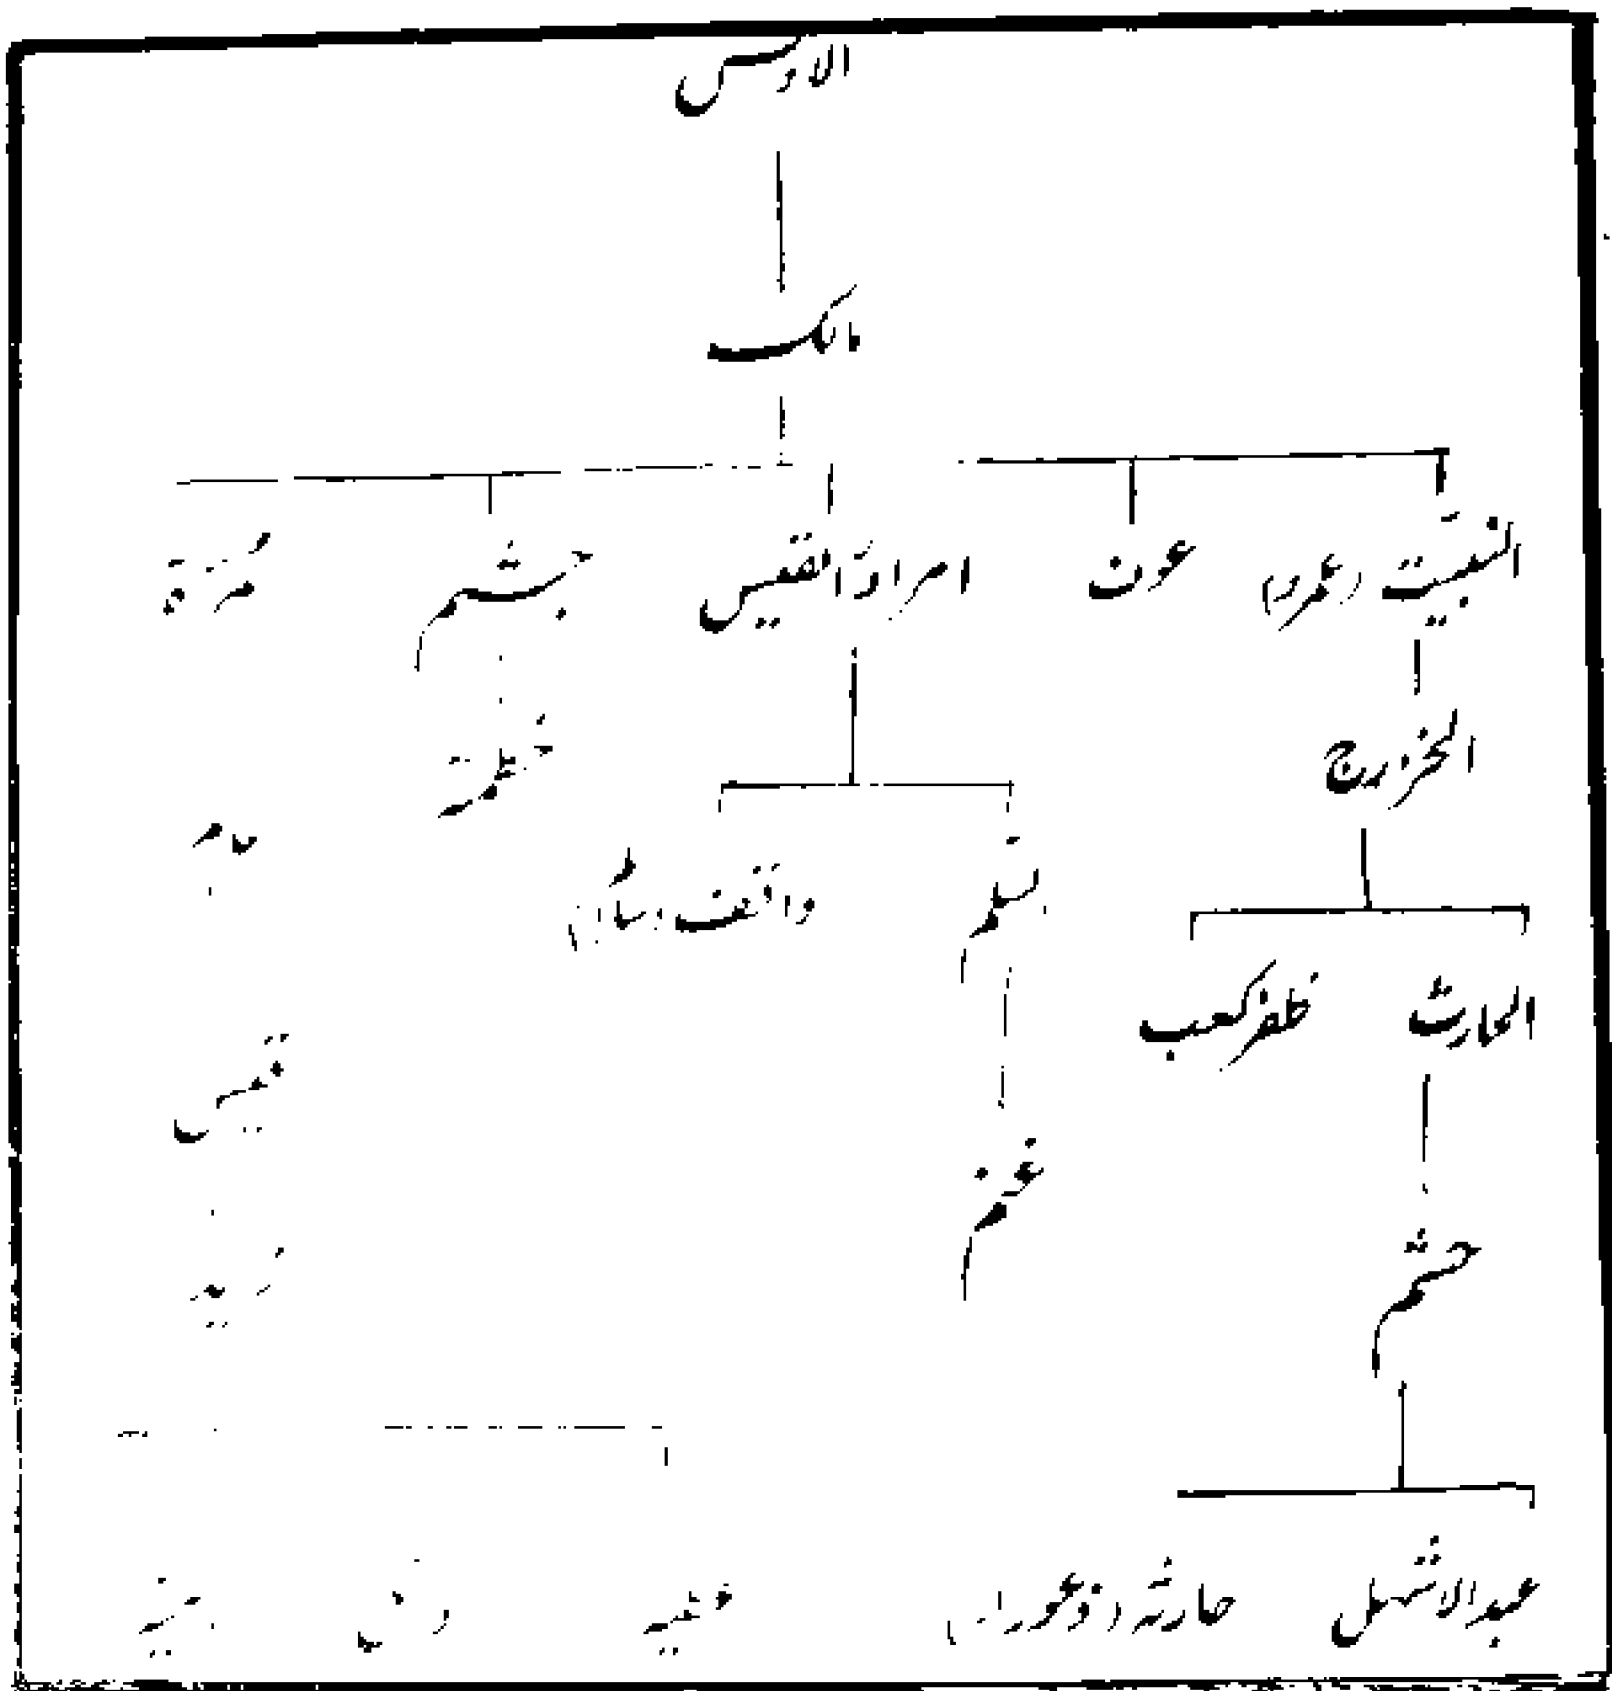 الاوس
مالک
النبیّت (عمرو) عون امراؤالقیس جشم مُرّة
الخزرج
خطمة
السلم
واقف
الحارث ظفر کعب
قیس
غنم
زید
جشم
عبدالاشہل حارثہ
عطیہ وائل امیہ